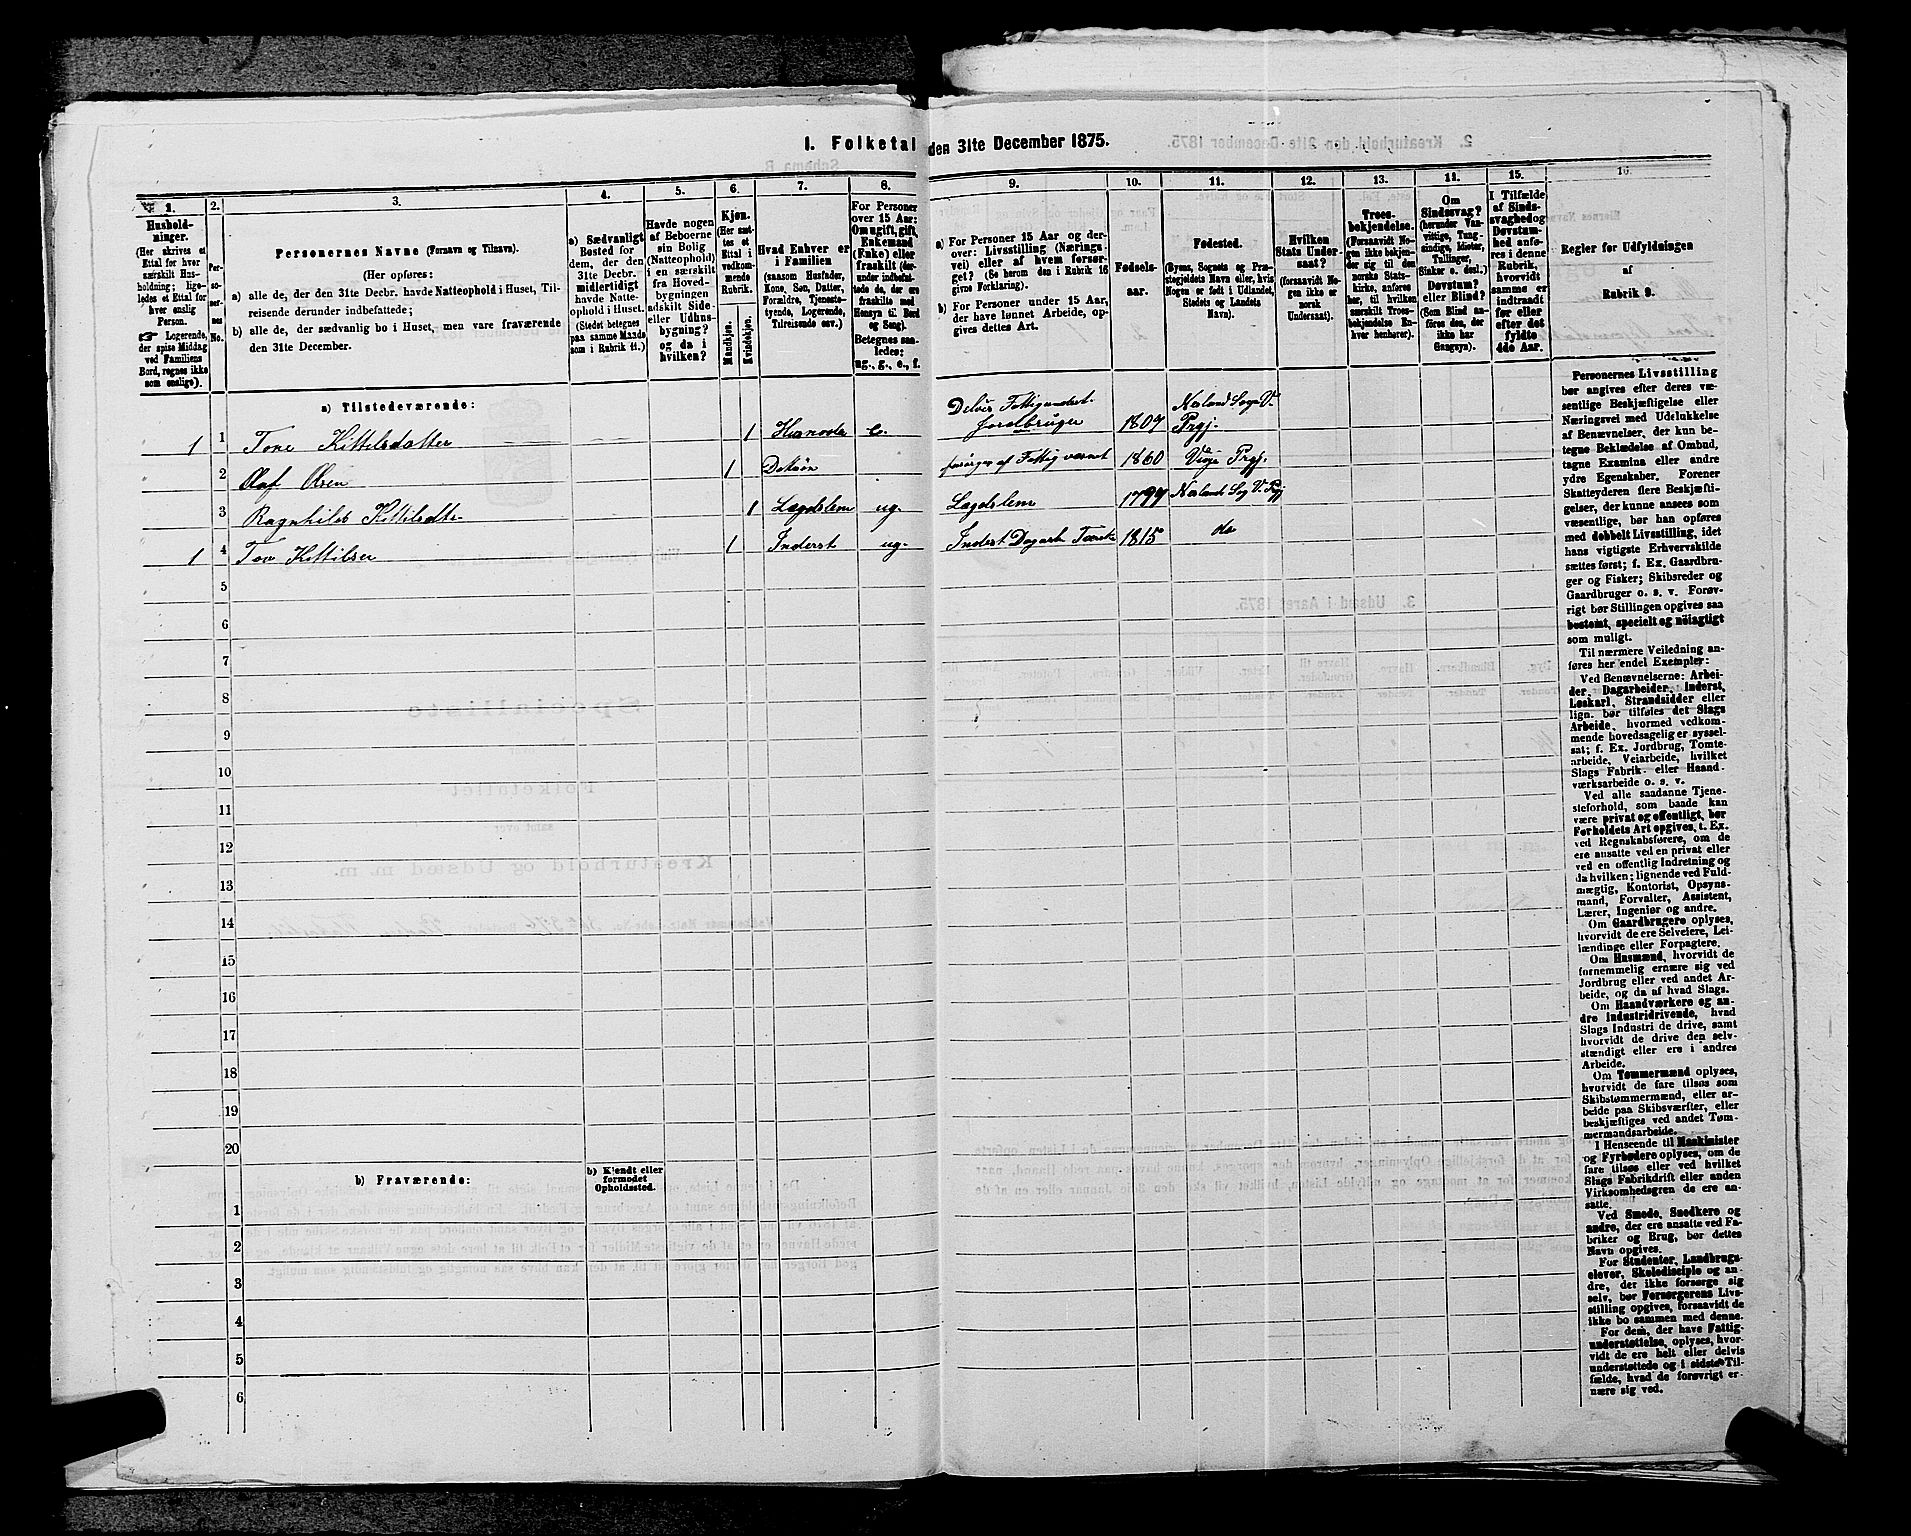 I. Folketal den 31te December 1875.
1. 2. 3. 4. 5. 6. 7. 8. 9. 10. 11. 12. 13. 14. 15. 16.
Husholdninger.
(Her skrives et
Ettal for hver
særskilt Husholdning;
ligeledes et Ettal for
hver enslig
Person.
Logerende,
der spise Middag
ved Familiens
Bord, regnes ikke
som enslige).
Personernes No.
Personernes Navne (Fornavn og Tilnavn).
(Her opføres:
a) alle de, der den 31te Decbr. havde Natteophold i Huset, Tilreisende
derunder indbefattede;
b) alle de, der sædvanlig bo i Huset, men vare fraværende
den 31te December.
a) Sædvanligt
Bosted for
dem, der den
31te Decbr.
midlertidigt
havde Natteophold
i Huset.
(Stedet betegnes
paa samme Maade
som i Rubrik 11.)
Havde nogen
af Beboerne
sin Bolig
(Natteophold)
i en særskilt
fra Hovedbygningen
adskilt Side-
eller Udhusbygning?
og da i
hvilken?
Kjøn.
(Her sættes
et
Ettal i
vedkommende
Rubrik.
Mandkjøn.
Kvindekjøn.
Hvad Enhver er
i Familien
(saasom Husfader,
Kone, Søn, Datter,
Forældre, Tjenestetyende,
Logerende,
Tilreisende osv.)
For Personer
over 15 Aar:
Om ugift, gift,
Enkemand
(Enke) eller
fraskilt (derunder
indbefattede
de, der ere
fraskilte med
Hensyn til Bord
og Seng).
Betegnes saaledes:
ug., g., e., f.
a) For Personer 15 Aar og derover:
Livsstilling (Næringsvei)
eller af hvem forsørget?
(Se herom den i Rubrik 16
givne Forklaring).
b) For Personer under 15 Aar,
der have lønnet Arbeide, opgives
dettes Art.
Fødselsaar.
Fødested.
(Byens, Sognets og Præstegjeldets
Navn eller, hvis
Nogen er født i Udlandet,
Stedets og Landets
Navn).
Hvilken
Stats Undersaat?
(forsaavidt Nogen
ikke er
norsk
Undersaat).
Troesbekjendelse.
(Forsaavidt Nogen
ikke bekjender
sig til den
norske Statskirke,
anføres
her, til hvilken
særskilt Troesbekjendelse
Enhver
henhører).
Om
Sindssvag?
(herunder Vanvittige,
Tungsindige,
Idioter,
Sinker o. desl.)
Døvstum?
eller Blind?
(Som Blind anføres
den, der
ikke har
Gangsyn).
I Tilfælde
af Sindssvaghed
og
Døvstumhed
anføres
i denne
Rubrik,
hvorvidt
samme er
indtraadt
før eller
efter det
fyldte
4de Aar.
Regler for Udfyldningen
af
Rubrik 9.
a) Tilstedeværende:
1 1 Tone Kittilsdatter 1 Husmoder e. Delvis Fattigunderst. Jordbruger 1809 Næsland Sogn V. Prgj.
2 Olaf Olsen 1 Dattersøn forsørges af Fattigvæsnet 1860 Vinje Prgj.
3 Ragnhild Kittilsdatter 1 Lægdslem ug. Lægdslem 1799 Næsland Sog V. Prgj
1 4 Tov Kittilsen 1 Inderst ug. Inderst Dagarb. 1815 do
5
6
7
8
9
10
11
12
13
14
15
16
17
18
19
20
b) Fraværende:
b) Kjendt eller
formodet
Opholdssted.
1
2
3
4
5
6
Personernes Livsstilling
bør angives efter deres væsentlige
Beskjæftigelse eller
Næringsvei med Udelukkelse
af Benævnelser, der kun betegne
Bekledelse af Ombud,
tagne Examina eller andre
ydre Egenskaber. Forener
Skatteyderen flere Beskjæftigelser,
der kunne ansees som
væsentlige, bør han opføres
med dobbelt Livsstilling, idet
hans vigtigste Erhvervskilde
sættes først; f. Ex. Gaardbruger
og Fisker; Skibsreder og
Gaardbruger o. s. v. Forøvrigt
bør Stillingen opgives saa
bestemt, specielt og nöiagtigt
som muligt.
Til nærmere Veiledning anføres
her endel Exempler:
Ved Benævnelserne: Arbeider,
Dagarbeider, Inderst,
Løskarl, Strandsidder eller
lign. bør tilføies det Slags
Arbeide, hvormed vedkommende
hovedsagelig er sysselsat;
f. Ex. Jordbrug, Tomtearbeide,
Veiarbeide, hvilket
Slags Fabrik- eller Haandværksarbeide
o. s. v.
Ved alle saadanne Tjenesteforhold,
som baade kan
være privat og offentligt, bør
Forholdets Art opgives, t. Ex.
ved Regnskabsførere, om de
ere ansatte ved en privat eller
ved en offentlig Indretning og
da hvilken; lignende ved Fuldmægtig,
Kontorist, Opsynsmand,
Forvalter, Assistent,
Lærer, Ingeniør og andre.
Om Gaardbrugere oplyses,
hvorvidt de ere Selveiere, Leilændinge
eller Forpagtere.
Om Husmænd, hvorvidt de
fornemmelig ernære sig ved
Jordbrug eller ved andet Arbeide,
og da af hvad Slags.
Om Haandværkere og andre
Industridrivende, hvad
Slags Industri de drive, samt
hvorvidt de drive den selvstændigt
eller ere i andres
Arbeide.
Om Tømmermænd oplyses,
hvorvidt de fare tilsøs som
Skibstømmermænd, eller arbeide
paa Skibsværfter, eller
beskjæftiges ved andet Tømmermandsarbeide.
I Henseende til Maskinister
og Fyrbødere oplyses, om de
fare tilsøs eller ved hvilket
Slags Fabrikdrift eller anden
Virksomhedsgren de ere ansatte.
Ved Smede, Snedkere og
andre, der ere ansatte ved Fabriker
og Brug, bør dettes
Navn opgives.
For Studenter, Landbrugselever,
Skoledisciple og andre,
der ikke forsørge sig
selv, bør Forsørgerens Livsstilling
opgives, forsaavidt de
ikke bo sammen med denne.
For dem, der have Fattigunderstøttelse,
oplyses, hvorvidt
de ere helt eller delvis
understøttede og i sidste Tilfælde,
hvad de forøvrigt ernære
sig ved.